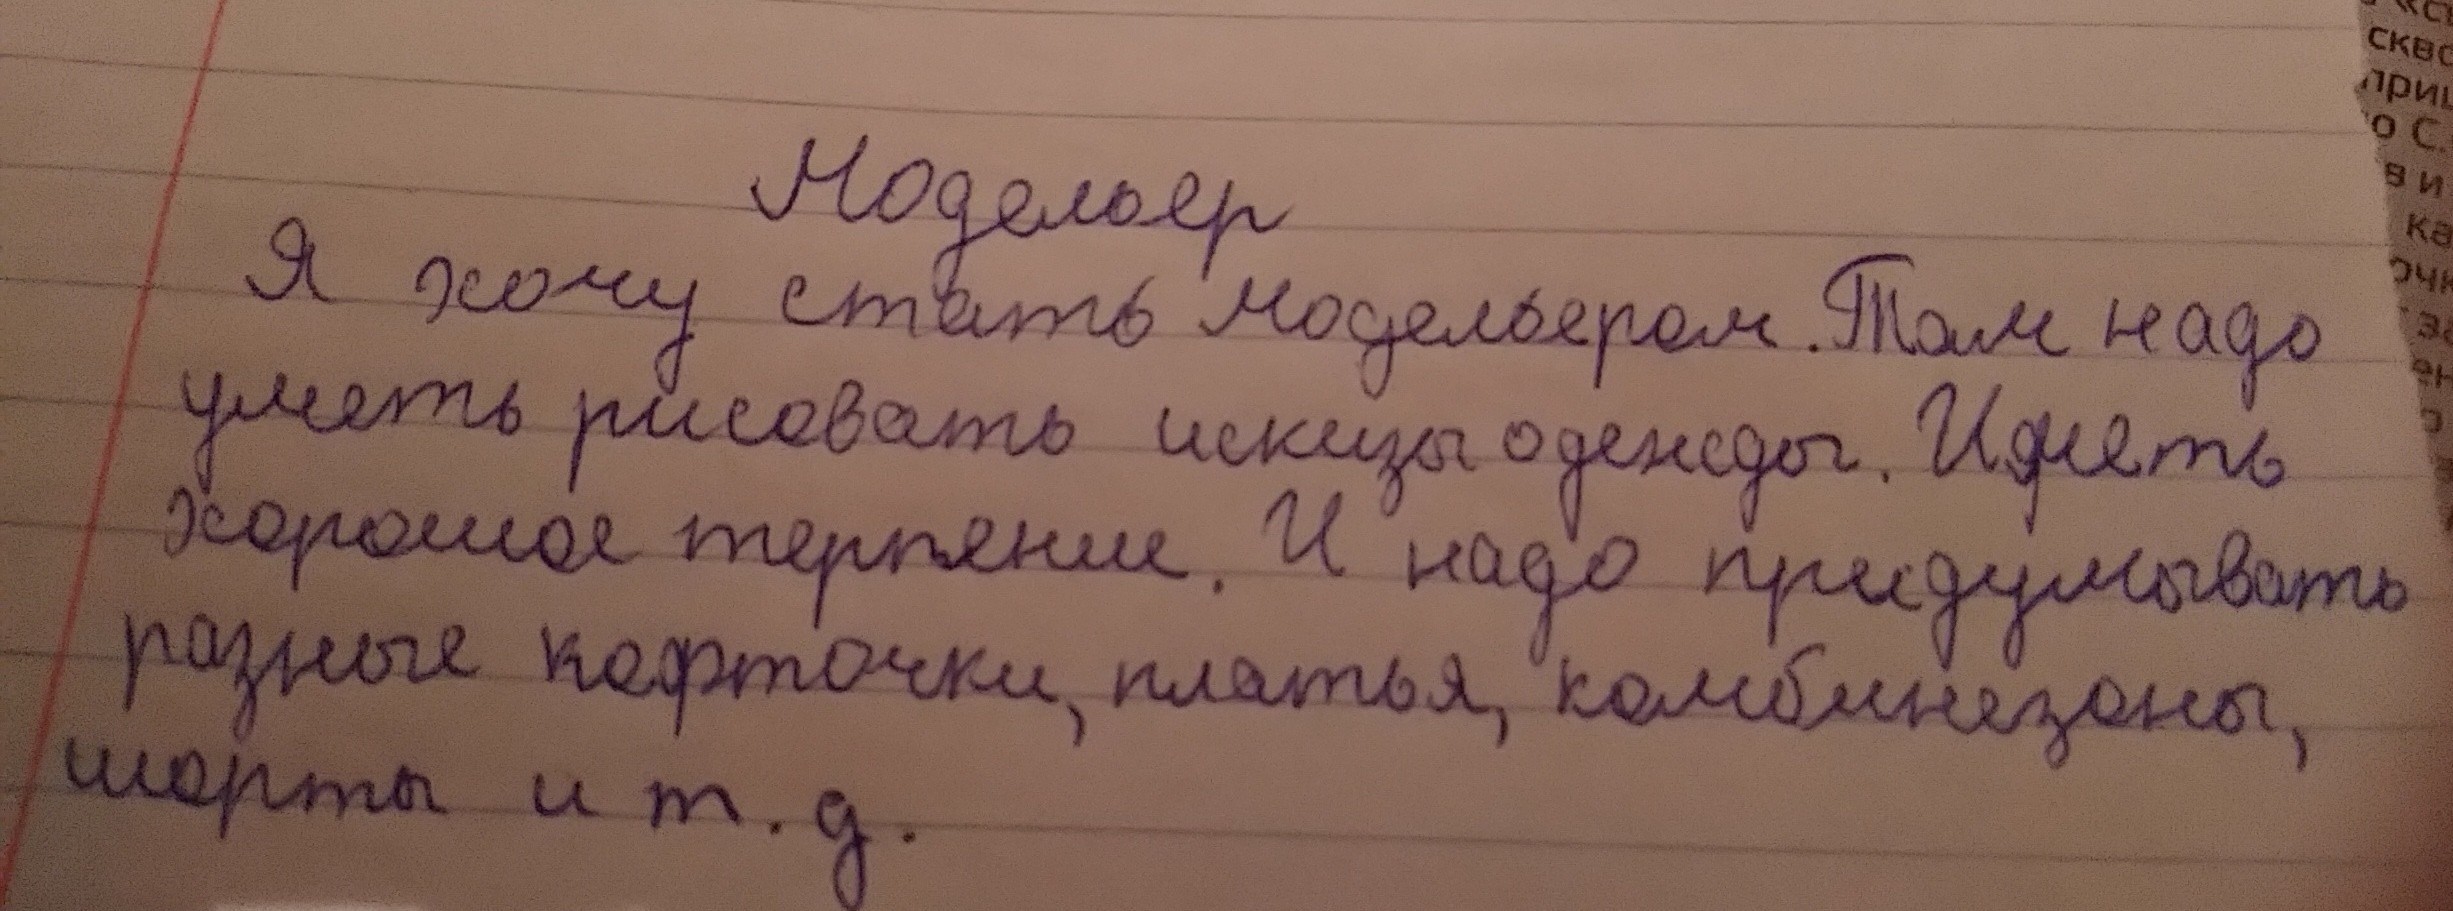 Модельер
Я хочу стать модельером. Там надо
уметь рисовать искизы одежды. Иметь
хорошое терпение. И надо придумывать
разные кофточки, платья, комбинезоны,
шорты и т. д.